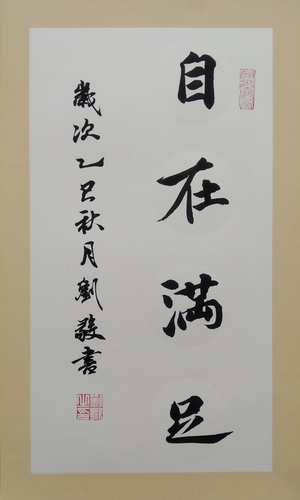 自在满足
歲次乙巳秋月劉毅書